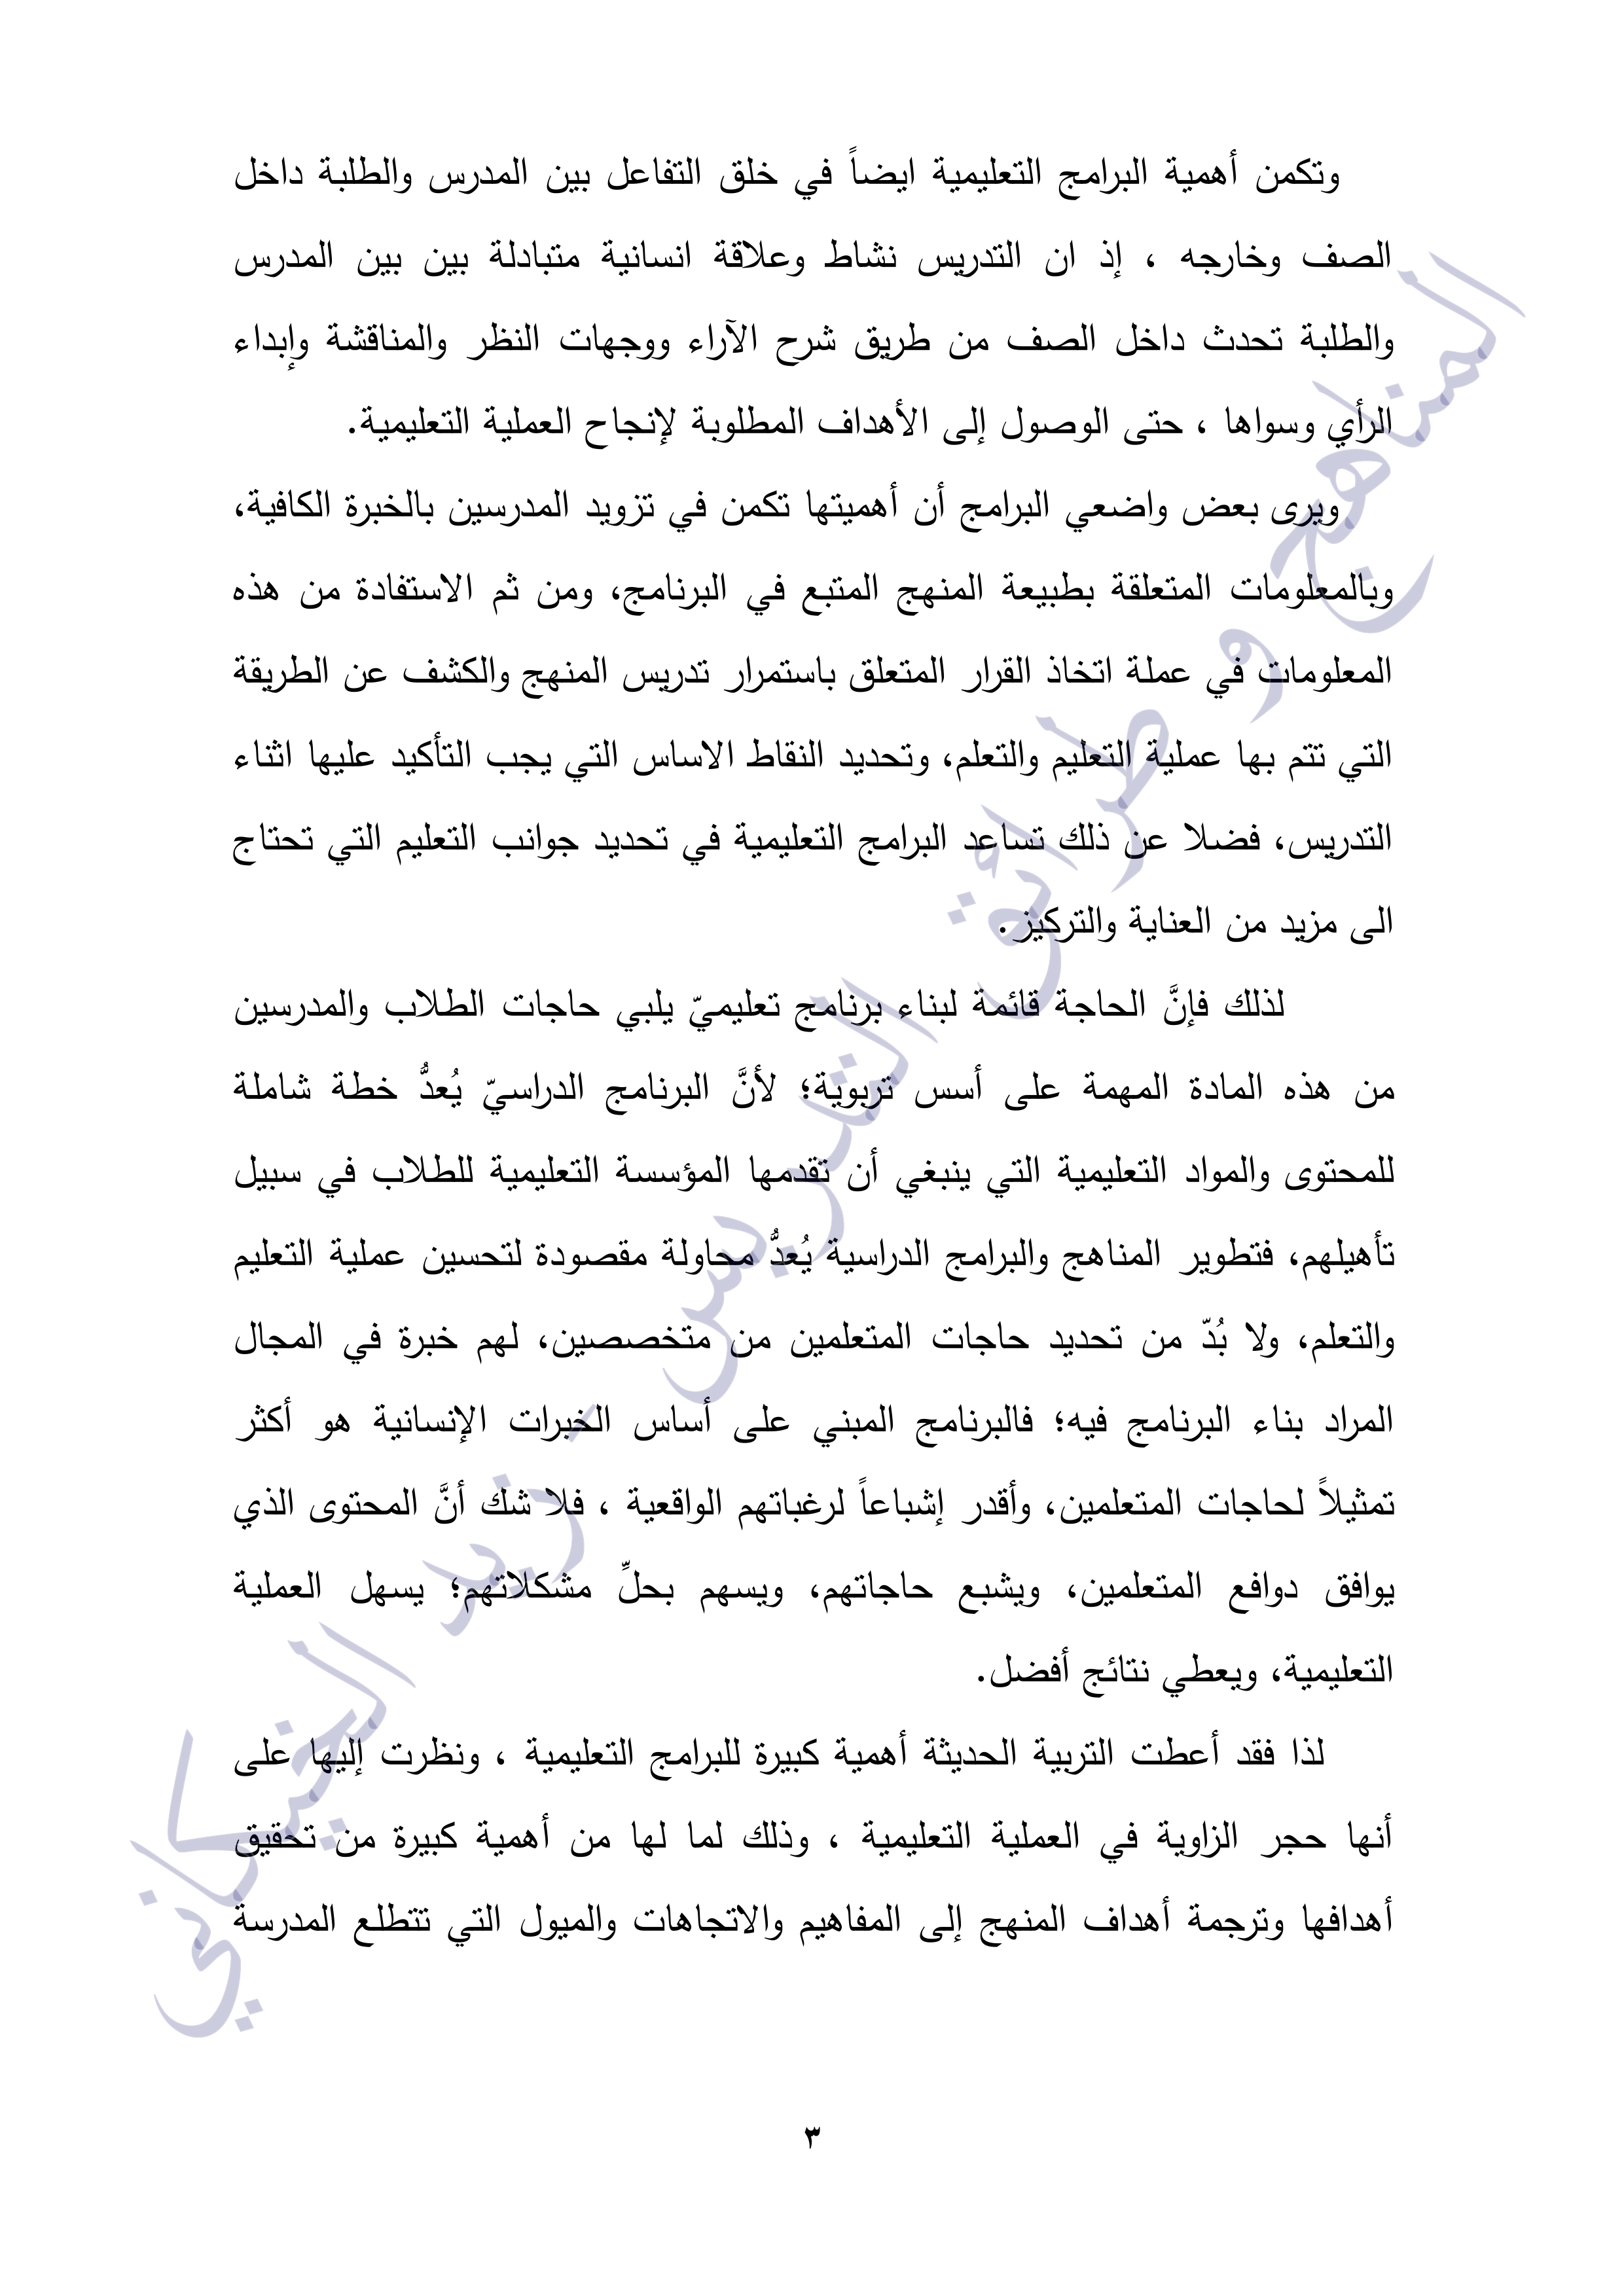 وتكمن أهمية البرامج التعليمية ايضاً في خلق التفاعل بين المدرس والطلبة داخل
الصف وخارجه ، إذ ان التدريس نشاط وعلاقة انسانية متبادلة بين بين المدرس
والطلبة تحدث داخل الصف من طريق شرح الآراء ووجهات النظر والمناقشة وإبداء
الرأي وسواها ، حتى الوصول إلى الأهداف المطلوبة لإنجاح العملية التعليمية.
ويرى بعض واضعي البرامج أن أهميتها تكمن في تزويد المدرسين بالخبرة الكافية،
وبالمعلومات المتعلقة بطبيعة المنهج المتبع في البرنامج، ومن ثم الاستفادة من هذه
المعلومات في عملة اتخاذ القرار المتعلق باستمرار تدريس المنهج والكشف عن الطريقة
التي تتم بها عملية التعليم والتعلم، وتحديد النقاط الاساس التي يجب التأكيد عليها اثناء
التدريس، فضلا عن ذلك تساعد البرامج التعليمية في تحديد جوانب التعليم التي تحتاج
الى مزيد من العناية والتركيز.
لذلك فإنَّ الحاجة قائمة لبناء برنامج تعليميّ يلبي حاجات الطلاب والمدرسين
من هذه المادة المهمة على أسس تربوية؛ لأنَّ البرنامج الدراسيّ يُعدُّ خطة شاملة
للمحتوى والمواد التعليمية التي ينبغي أن تقدمها المؤسسة التعليمية للطلاب في سبيل
تأهيلهم، فتطوير المناهج والبرامج الدراسية يُعدُّ محاولة مقصودة لتحسين عملية التعليم
والتعلم، ولا بُدّ من تحديد حاجات المتعلمين من متخصصين، لهم خبرة في المجال
المراد بناء البرنامج فيه؛ فالبرنامج المبني على أساس الخبرات الإنسانية هو أكثر
تمثيلاً لحاجات المتعلمين، وأقدر إشباعاً لرغباتهم الواقعية ، فلا شك أنَّ المحتوى الذي
يوافق دوافع المتعلمين، ويشبع حاجاتهم، ويسهم بحلِّ مشكلاتهم؛ يسهل العملية
التعليمية، ويعطي نتائج أفضل.
لذا فقد أعطت التربية الحديثة أهمية كبيرة للبرامج التعليمية ، ونظرت إليها على
أنها حجر الزاوية في العملية التعليمية ، وذلك لما لها من أهمية كبيرة من تحقيق
أهدافها وترجمة أهداف المنهج إلى المفاهيم والاتجاهات والميول التي تتطلع المدرسة
المناهج و طرائق التدريس - زيد الخيكاني
٣